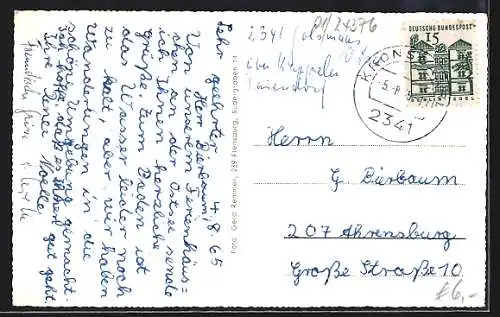 4.8.65
Sehr geehrter
Herr Bierbaum!
Von unserem Ferienhäus=
chen an der Ostsee sende
ich Ihnen herzliche
Grüße. Zum Baden ist
das Wasser leider noch
zu kalt, aber wir haben
Wanderungen in die
schöne Umgebung gemacht.
Ich hoffe, daß es Ihnen gut geht.
Ihre
Foto Gerd Remmer, 239 Flensburg, Südergraben 11
P1/24376
2341
über Kappeln
DEUTSCHE BUNDESPOST
15
2341
Herrn
G. Bierbaum
207 Ahrensburg
Große Straße 10
€6,-